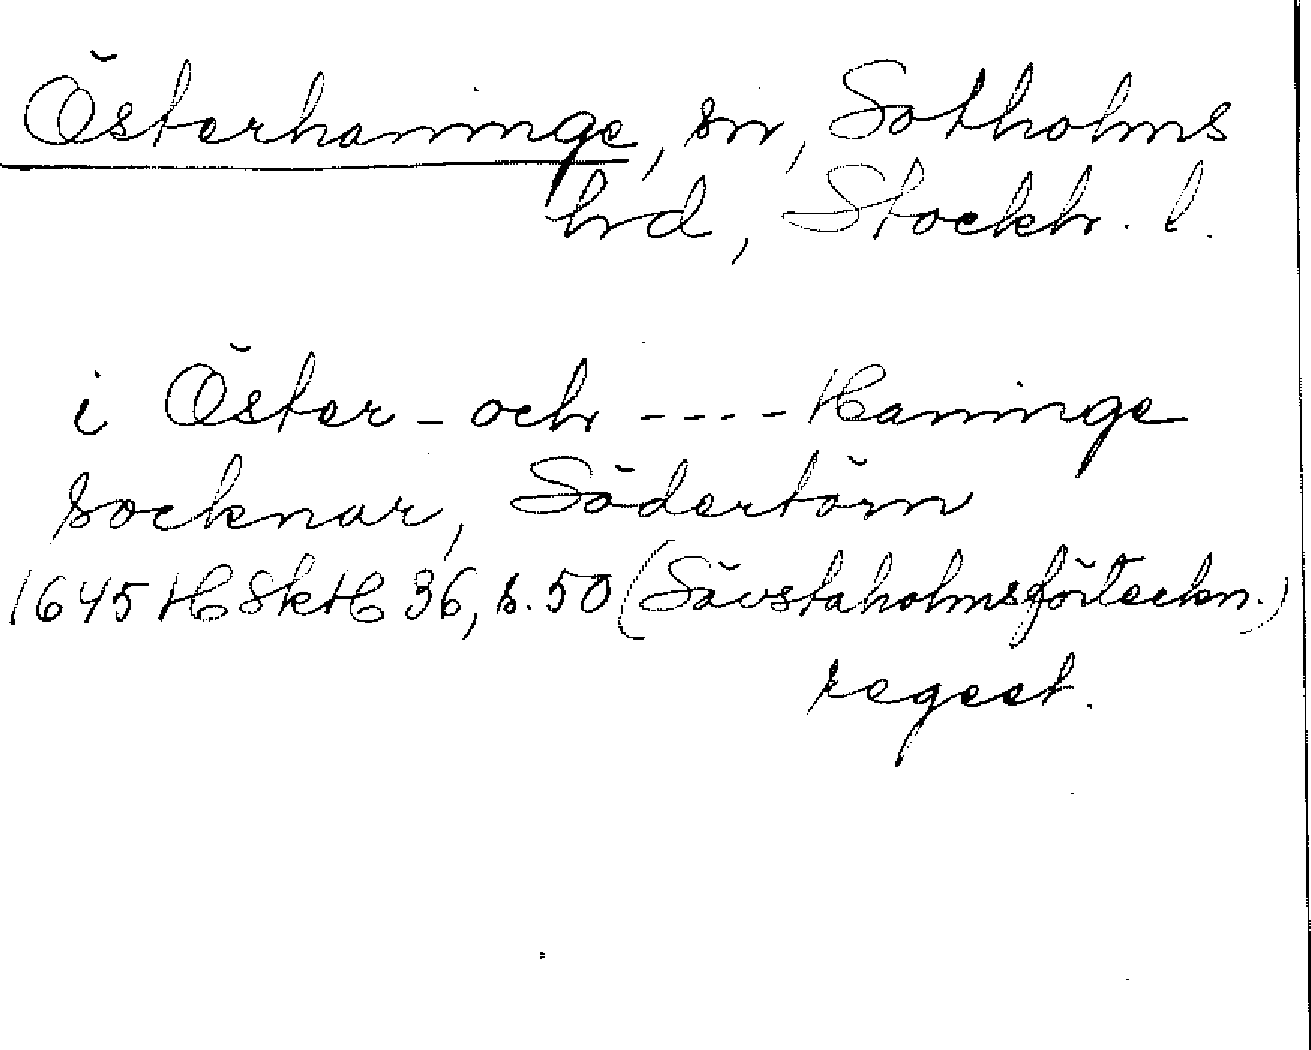 Österhaninge, sn, Sotholms
hrd, Stockh. l.
i Öster- och ---- Haninge
socknar, Södertörn
1645 HSkH 36, s. 50 (Sävstaholmsförteckn.)
regest.